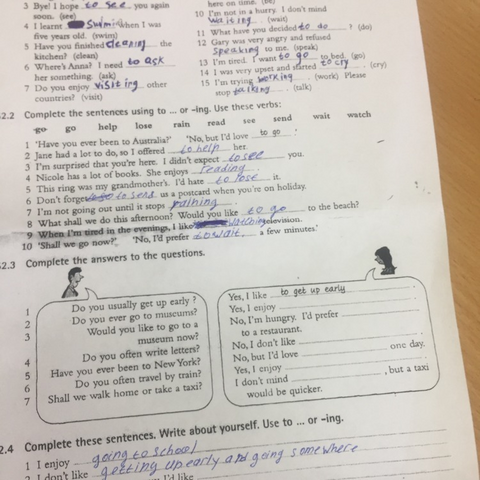 here on time. (be)
3 Bye! I hope to see you again
soon. (see)
4 I learnt swim when I was
five years old. (swim)
5 Have you finished cleaning the
kitchen? (clean)
6 Where's Anna? I need to ask
her something. (ask)
7 Do you enjoy visiting other
countries? (visit)
10 I'm not in a hurry. I don't mind
waiting. (wait)
11 What have you decided to do ? (do)
12 Gary was very angry and refused
speaking to me. (speak)
13 I'm tired. I want to go to bed. (go)
14 I was very upset and started to cry. (cry)
15 I'm trying working. (work) Please
stop talking. (talk)
52.2 Complete the sentences using to ... or -ing. Use these verbs:
go go help lose rain read see send wait watch
1 'Have you ever been to Australia?' 'No, but I'd love to go.'
2 Jane had a lot to do, so I offered to help her.
3 I'm surprised that you're here. I didn't expect to see you.
4 Nicole has a lot of books. She enjoys reading.
5 This ring was my grandmother's. I'd hate to lose it.
6 Don't forget to send us a postcard when you're on holiday.
7 I'm not going out until it stops raining.
8 What shall we do this afternoon? Would you like to go to the beach?
9 When I'm tired in the evenings, I like watching television.
10 'Shall we go now?' 'No, I'd prefer to wait a few minutes.'
52.3 Complete the answers to the questions.
1 Do you usually get up early ?
2 Do you ever go to museums?
3 Would you like to go to a
museum now?
4 Do you often write letters?
5 Have you ever been to New York?
6 Do you often travel by train?
7 Shall we walk home or take a taxi?
Yes, I like to get up early.
Yes, I enjoy
No, I'm hungry. I'd prefer
to a restaurant.
No, I don't like
No, but I'd love one day.
Yes, I enjoy
I don't mind , but a taxi
would be quicker.
2.4 Complete these sentences. Write about yourself. Use to ... or -ing.
1 I enjoy going to school
2 I don't like getting up early and going somewhere